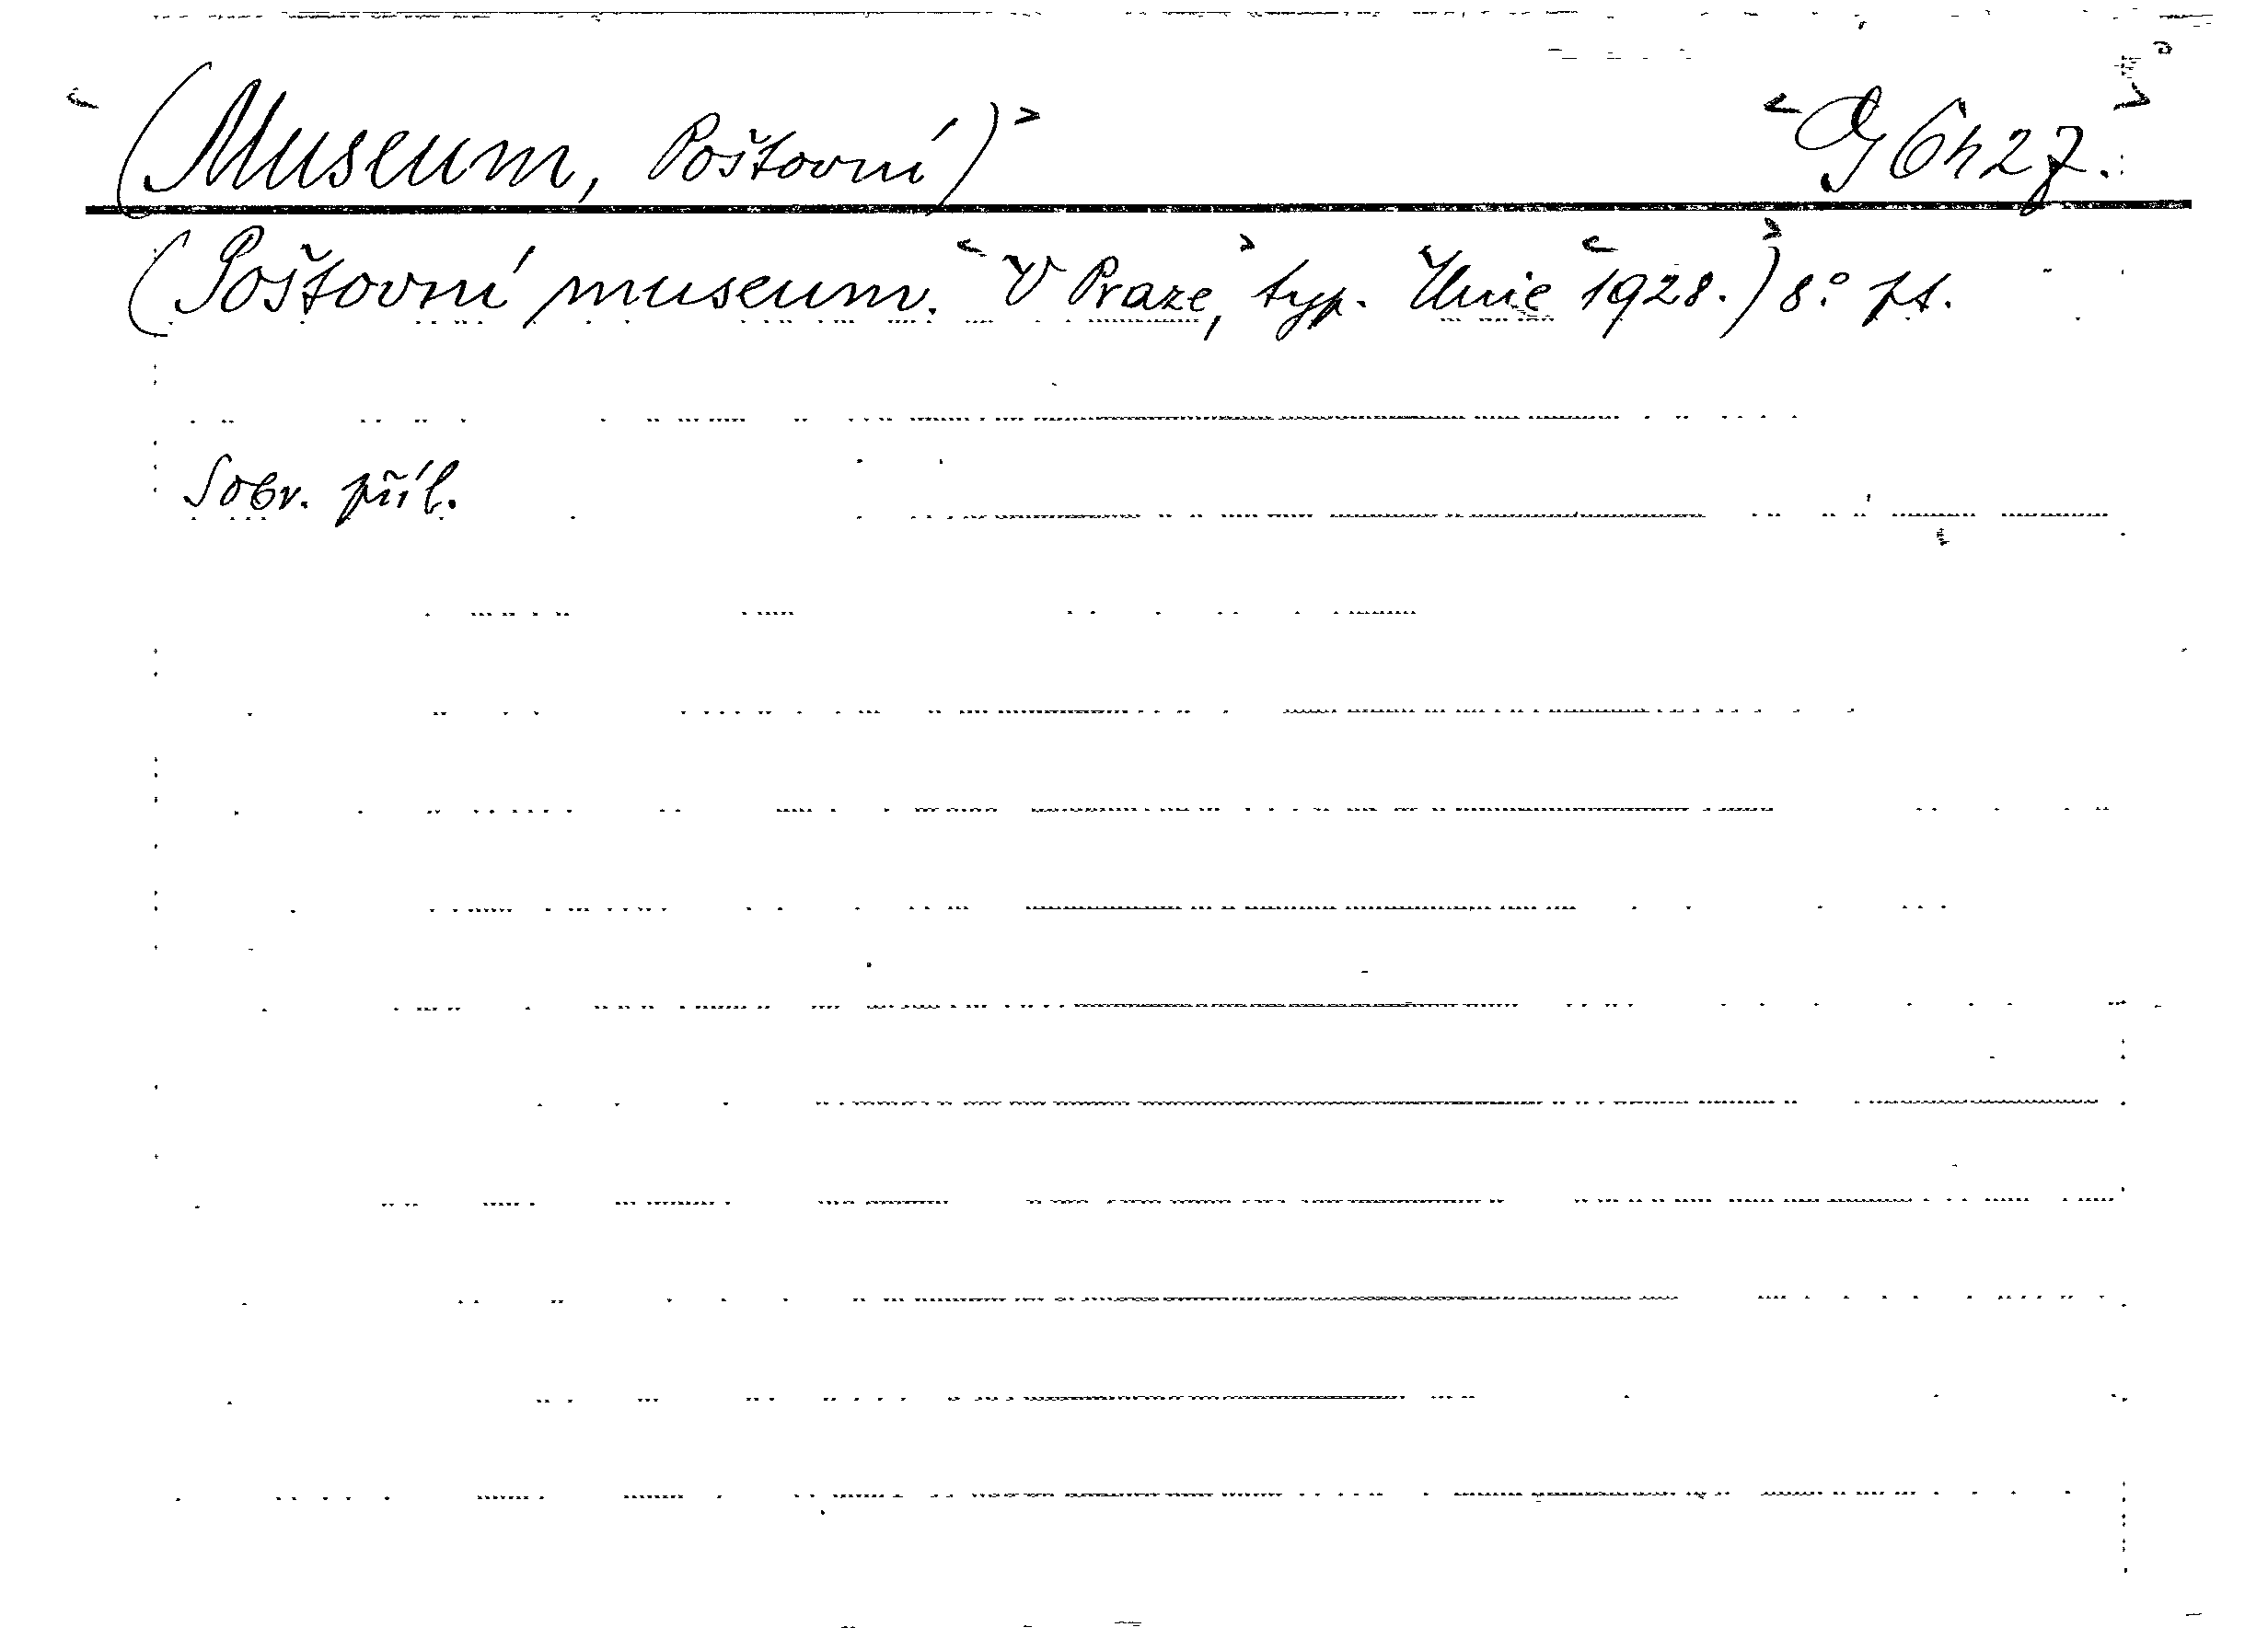 (Museum, Poštovní) G 6h27.
(Poštovní museum. V Praze, typ. Unie 1928.) 8° pt.
Sobr. příl.